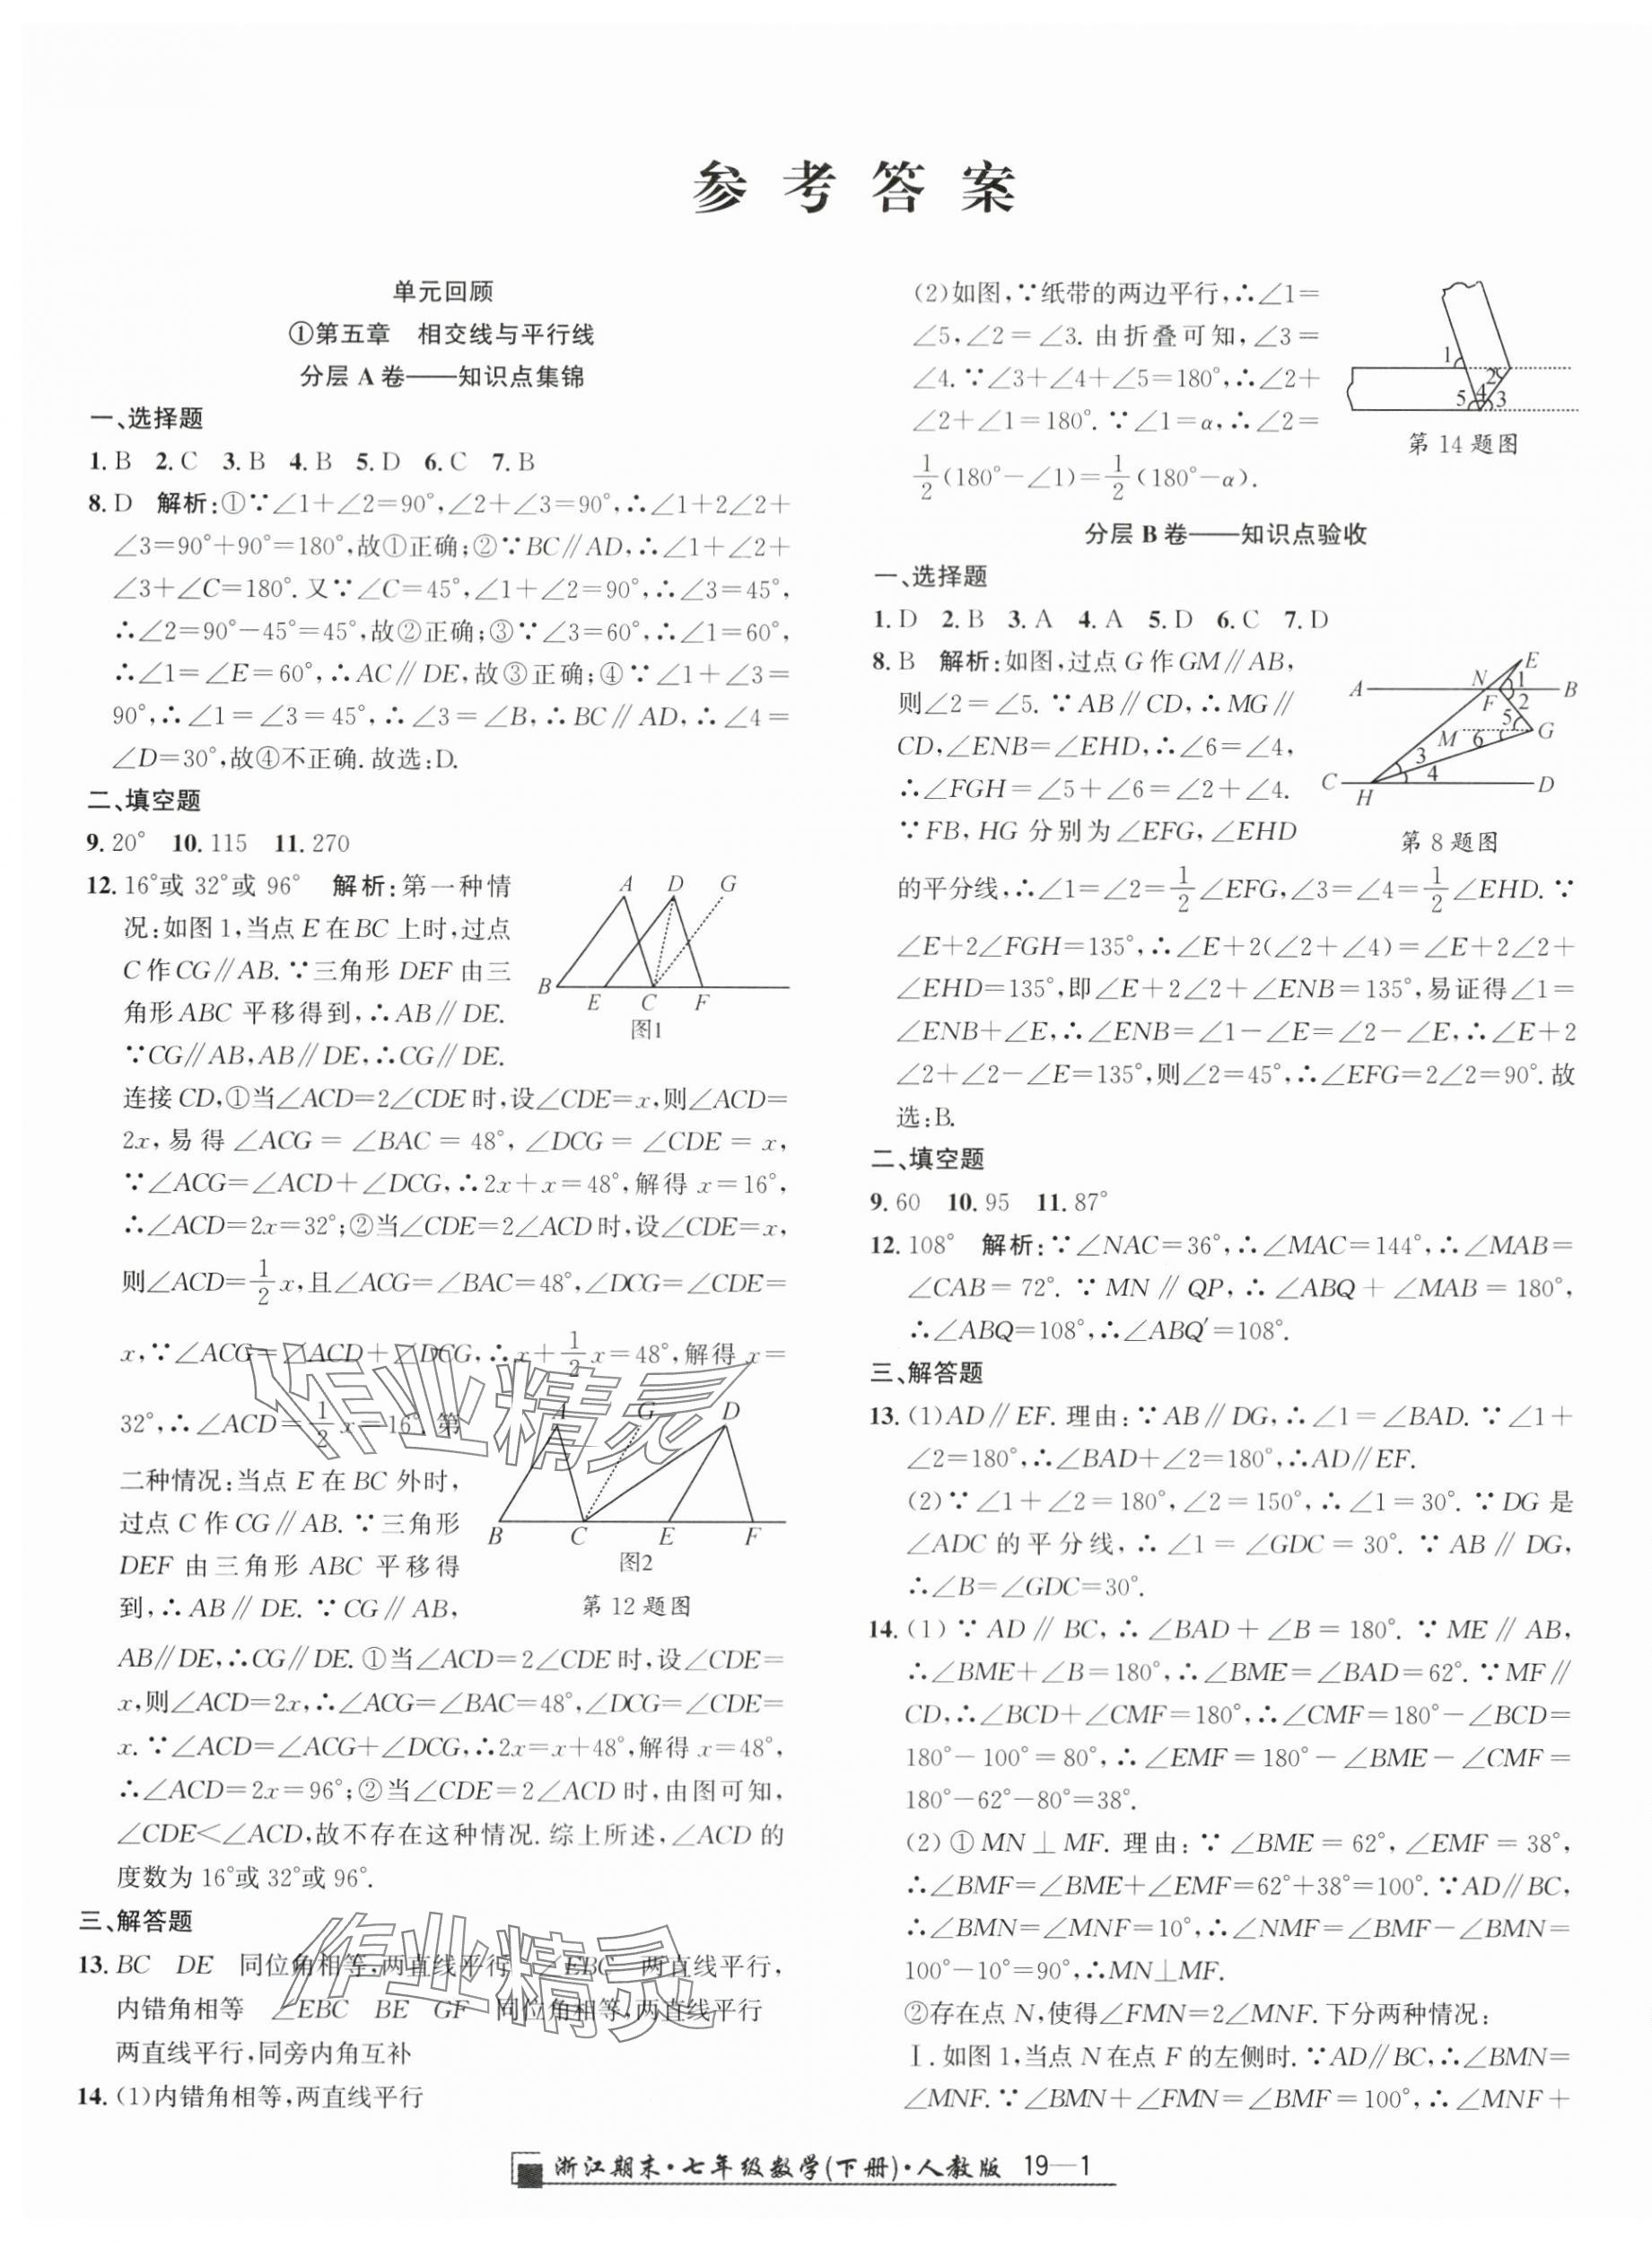 参考答案
单元回顾
①第五章　相交线与平行线
分层 A 卷——知识点集锦
一、选择题
1. B　2. C　3. B　4. B　5. D　6. C　7. B
8. D　解析:①∵∠1+∠2=90°,∠2+∠3=90°,∴∠1+2∠2+
∠3=90°+90°=180°,故①正确;②∵BC∥AD,∴∠1+∠2+
∠3+∠C=180°. 又∵∠C=45°,∠1+∠2=90°,∴∠3=45°,
∴∠2=90°-45°=45°,故②正确;③∵∠3=60°,∴∠1=60°,
∴∠1=∠E=60°,∴AC∥DE,故③正确;④∵∠1+∠3=
90°,∴∠1=∠3=45°,∴∠3=∠B,∴BC∥AD,∴∠4=
∠D=30°,故④不正确. 故选:D.
二、填空题
9. 20°　10. 115　11. 270
12. 16°或 32°或 96°　解析:第一种情
况:如图 1,当点 E 在 BC 上时,过点
C 作 CG∥AB. ∵三角形 DEF 由三
角形 ABC 平移得到,∴AB∥DE.
∵CG∥AB,AB∥DE,∴CG∥DE.
A D G
B E C F
图1
连接 CD,①当∠ACD=2∠CDE 时,设∠CDE=x,则∠ACD=
2x,易得∠ACG=∠BAC=48°,∠DCG=∠CDE=x,
∵∠ACG=∠ACD+∠DCG,∴2x+x=48°,解得 x=16°,
∴∠ACD=2x=32°;②当∠CDE=2∠ACD 时,设∠CDE=x,
则∠ACD=1/2 x,且∠ACG=∠BAC=48°,∠DCG=∠CDE=
x,∵∠ACG=∠ACD+∠DCG,∴x+1/2 x=48°,解得 x=
32°,∴∠ACD=1/2 x=16°. 第
二种情况:当点 E 在 BC 外时,
过点 C 作 CG∥AB. ∵三角形
DEF 由三角形 ABC 平移得
到,∴AB∥DE. ∵CG∥AB,
A G D
B C E F
图2
第 12 题图
AB∥DE,∴CG∥DE. ①当∠ACD=2∠CDE 时,设∠CDE=
x,则∠ACD=2x,∴∠ACG=∠BAC=48°,∠DCG=∠CDE=
x. ∵∠ACD=∠ACG+∠DCG,∴2x=x+48°,解得 x=48°,
∴∠ACD=2x=96°;②当∠CDE=2∠ACD 时,由图可知,
∠CDE<∠ACD,故不存在这种情况. 综上所述,∠ACD 的
度数为 16°或 32°或 96°.
三、解答题
13. BC　DE　同位角相等,两直线平行　∠EBC　两直线平行,
内错角相等　∠EBC　BE　GF　同位角相等,两直线平行
两直线平行,同旁内角互补
14. (1)内错角相等,两直线平行
(2)如图,∵纸带的两边平行,∴∠1=
∠5,∠2=∠3. 由折叠可知,∠3=
∠4. ∵∠3+∠4+∠5=180°,∴∠2+
∠2+∠1=180°. ∵∠1=α,∴∠2=
1/2(180°-∠1)=1/2(180°-α).
1 2 5 4 3
第 14 题图
分层 B 卷——知识点验收
一、选择题
1. D　2. B　3. A　4. A　5. D　6. C　7. D
8. B　解析:如图,过点 G 作 GM∥AB,
则∠2=∠5. ∵AB∥CD,∴MG∥
CD,∠ENB=∠EHD,∴∠6=∠4,
∴∠FGH=∠5+∠6=∠2+∠4.
∵FB,HG 分别为∠EFG,∠EHD
E
A N 1 B
F 2
5 G
M 6
3
C 4 D
H
第 8 题图
的平分线,∴∠1=∠2=1/2∠EFG,∠3=∠4=1/2∠EHD. ∵
∠E+2∠FGH=135°,∴∠E+2(∠2+∠4)=∠E+2∠2+
∠EHD=135°,即∠E+2∠2+∠ENB=135°,易证得∠1=
∠ENB+∠E,∴∠ENB=∠1-∠E=∠2-∠E,∴∠E+2
∠2+∠2-∠E=135°,则∠2=45°,∴∠EFG=2∠2=90°. 故
选:B.
二、填空题
9. 60　10. 95　11. 87°
12. 108°　解析:∵∠NAC=36°,∴∠MAC=144°,∴∠MAB=
∠CAB=72°. ∵MN∥QP,∴∠ABQ+∠MAB=180°,
∴∠ABQ=108°,∴∠ABQ′=108°.
三、解答题
13. (1)AD∥EF. 理由:∵AB∥DG,∴∠1=∠BAD. ∵∠1+
∠2=180°,∴∠BAD+∠2=180°,∴AD∥EF.
(2)∵∠1+∠2=180°,∠2=150°,∴∠1=30°. ∵DG 是
∠ADC 的平分线,∴∠1=∠GDC=30°. ∵AB∥DG,
∴∠B=∠GDC=30°.
14. (1)∵AD∥BC,∴∠BAD+∠B=180°. ∵ME∥AB,
∴∠BME+∠B=180°,∴∠BME=∠BAD=62°. ∵MF∥
CD,∴∠BCD+∠CMF=180°,∴∠CMF=180°-∠BCD=
180°-100°=80°,∴∠EMF=180°-∠BME-∠CMF=
180°-62°-80°=38°.
(2)①MN⊥MF. 理由:∵∠BME=62°,∠EMF=38°,
∴∠BMF=∠BME+∠EMF=62°+38°=100°. ∵AD∥BC,
∴∠BMN=∠MNF=10°,∴∠NMF=∠BMF-∠BMN=
100°-10°=90°,∴MN⊥MF.
②存在点 N,使得∠FMN=2∠MNF. 下分两种情况:
Ⅰ. 如图 1,当点 N 在点 F 的左侧时. ∵AD∥BC,∴∠BMN=
∠MNF. ∵∠BMN+∠FMN=∠BMF=100°,∴∠MNF+
作业精灵
作业精灵
浙江期末·七年级数学(下册)·人教版　19—1